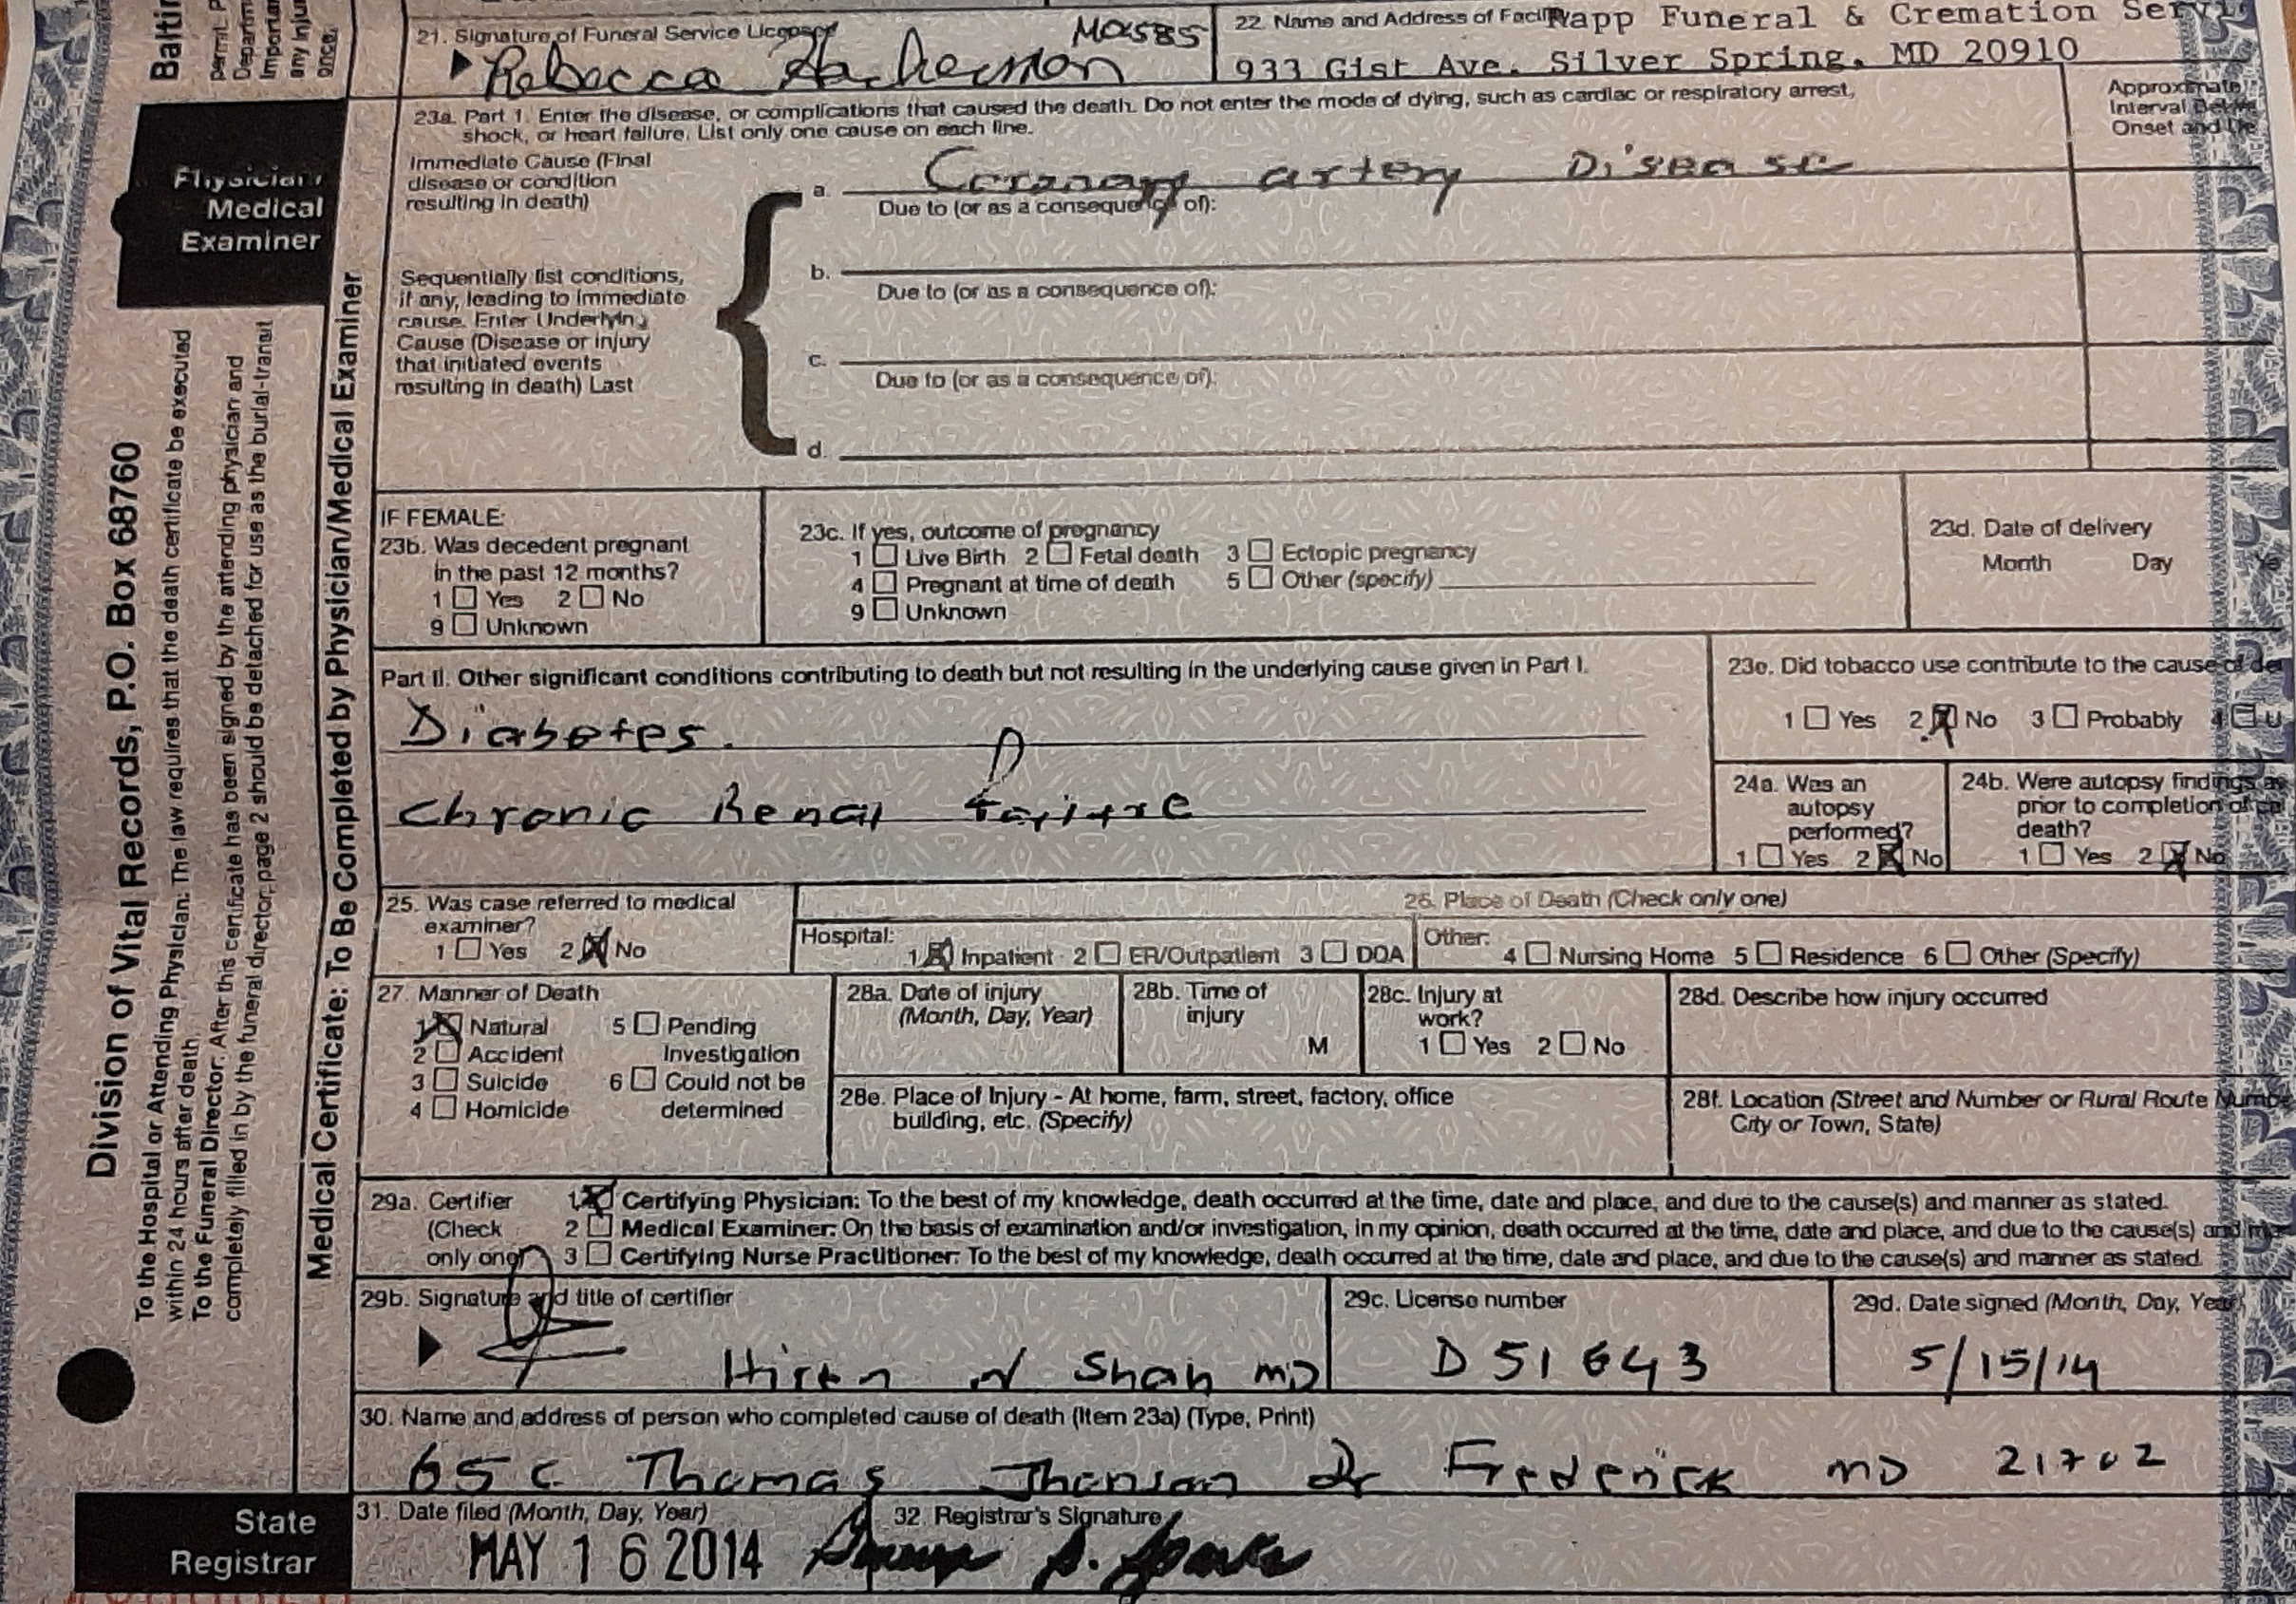 21. Signature of Funeral Service Licensee
MO1585
Rebecca
22. Name and Address of Facility Rapp Funeral & Cremation Servi
933 Gist Ave. Silver Spring, MD 20910
23a. Part 1. Enter the disease, or complications that caused the death. Do not enter the mode of dying, such as cardiac or respiratory arrest,
shock, or heart failure. List only one cause on each line.
Approximate
Interval Betwe
Onset and De
Immediate Cause (Final
disease or condition
resulting in death)
a. Coronary artery Disease
Due to (or as a consequence of):
Sequentially list conditions,
if any, leading to immediate
cause. Enter Underlying
Cause (Disease or injury
that initiated events
resulting in death) Last
b.
Due to (or as a consequence of):
c.
Due to (or as a consequence of):
d.
IF FEMALE:
23b. Was decedent pregnant
in the past 12 months?
1 Yes 2 No
9 Unknown
23c. If yes, outcome of pregnancy
1 Live Birth 2 Fetal death 3 Ectopic pregnancy
4 Pregnant at time of death 5 Other (specify)
9 Unknown
23d. Date of delivery
Month Day Ye
Part II. Other significant conditions contributing to death but not resulting in the underlying cause given in Part I.
Diabetes.
Chronic Renal Failure
23e. Did tobacco use contribute to the cause of dea
1 Yes 2 No 3 Probably 4 U
24a. Was an
autopsy
performed?
1 Yes 2 No
24b. Were autopsy findings
prior to completion of
death?
1 Yes 2 No
25. Was case referred to medical
examiner?
1 Yes 2 No
26. Place of Death (Check only one)
Hospital:
1 Inpatient 2 ER/Outpatient 3 DOA
Other:
4 Nursing Home 5 Residence 6 Other (Specify)
27. Manner of Death
1 Natural 5 Pending
2 Accident Investigation
3 Suicide 6 Could not be
4 Homicide determined
28a. Date of injury
(Month, Day, Year)
28b. Time of
injury
M
28c. Injury at
work?
1 Yes 2 No
28d. Describe how injury occurred
28e. Place of Injury - At home, farm, street, factory, office
building, etc. (Specify)
28f. Location (Street and Number or Rural Route Numbe
City or Town, State)
29a. Certifier
(Check
only one)
1 Certifying Physician: To the best of my knowledge, death occurred at the time, date and place, and due to the cause(s) and manner as stated.
2 Medical Examiner: On the basis of examination and/or investigation, in my opinion, death occurred at the time, date and place, and due to the cause(s) and
3 Certifying Nurse Practitioner: To the best of my knowledge, death occurred at the time, date and place, and due to the cause(s) and manner as stated.
29b. Signature and title of certifier
Hiren N Shah MD
29c. License number
D 51643
29d. Date signed (Month, Day, Year)
5/15/14
30. Name and address of person who completed cause of death (Item 23a) (Type, Print)
65 C Thomas Jhonson Dr Frederick MD 21702
31. Date filed (Month, Day, Year)
MAY 16 2014
32. Registrar's Signature
Physician/
Medical
Examiner
State
Registrar
Medical Certificate: To Be Completed by Physician/Medical Examiner
Division of Vital Records, P.O. Box 68760
To the Hospital or Attending Physician: The law requires that the death certificate be executed
within 24 hours after death.
To the Funeral Director: After this certificate has been signed by the attending physician and
completely filled in by the funeral director, page 2 should be detached for use as the burial-transit
Baltim
permit. P
Departm
Importan
any injur
once.